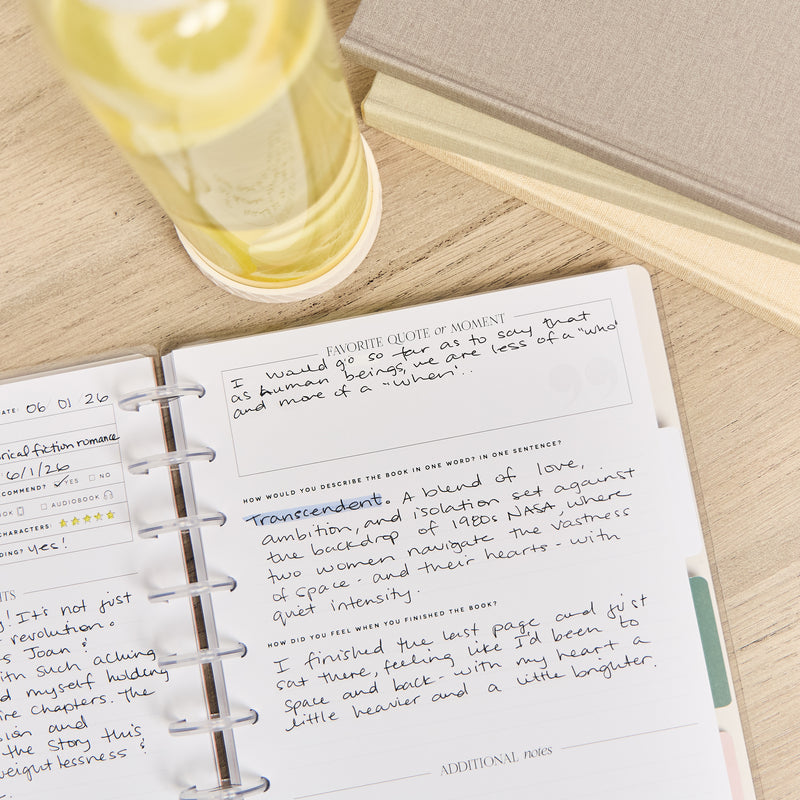 DATE: 06/01/26
rical fiction romance
6/1/26
COMMEND? ✓ YES ☐ NO
OOK ☐ AUDIOBOOK
CHARACTERS: ★★★★★
DING? Yes!
HTS
! It's not just
revolution.
s Joan &
ith such aching
d myself holding
ire chapters. The
sion and
the story this
weightlessness &
FAVORITE QUOTE or MOMENT
I would go so far as to say that
as human beings, we are less of a "who"
and more of a "when"..
HOW WOULD YOU DESCRIBE THE BOOK IN ONE WORD? IN ONE SENTENCE?
Transcendent. A blend of love,
ambition, and isolation set against
the backdrop of 1980s NASA, where
two women navigate the vastness
of space - and their hearts - with
quiet intensity.
HOW DID YOU FEEL WHEN YOU FINISHED THE BOOK?
I finished the last page and just
sat there, feeling like I'd been to
space and back - with my heart a
little heavier and a little brighter.
ADDITIONAL notes